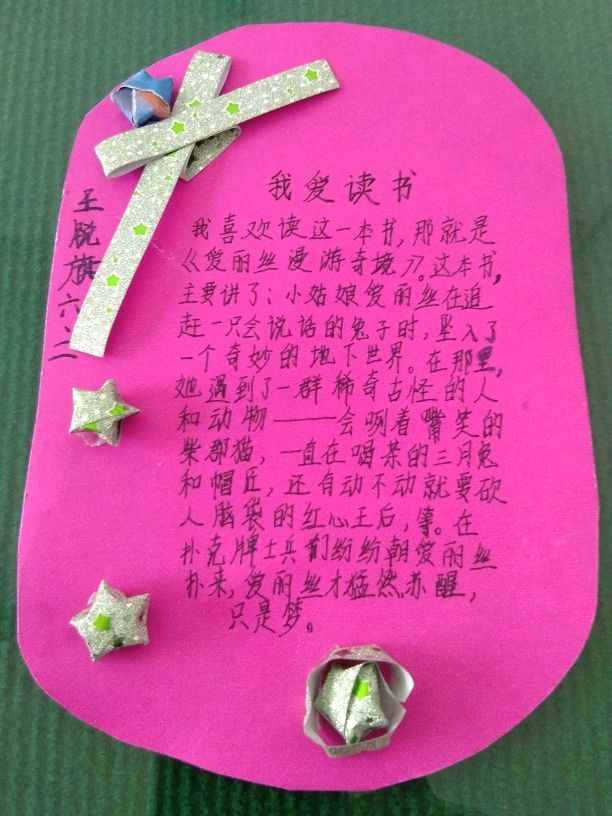 我爱读书
王脱旗六二
我喜欢读这一本书,那就是
《爱丽丝漫游奇境》。这本书,
主要讲了:小姑娘爱丽丝在追
赶一只会说话的兔子时,坠入了
一个奇妙的地下世界。在那里,
她遇到了一群稀奇古怪的人
和动物——会咧着嘴笑的
柴郡猫,一直在喝茶的三月兔
和帽匠,还有动不动就要砍
人脑袋的红心王后,等。在
扑克牌士兵们纷纷朝爱丽丝
扑来,爱丽丝才猛然苏醒,
只是梦。